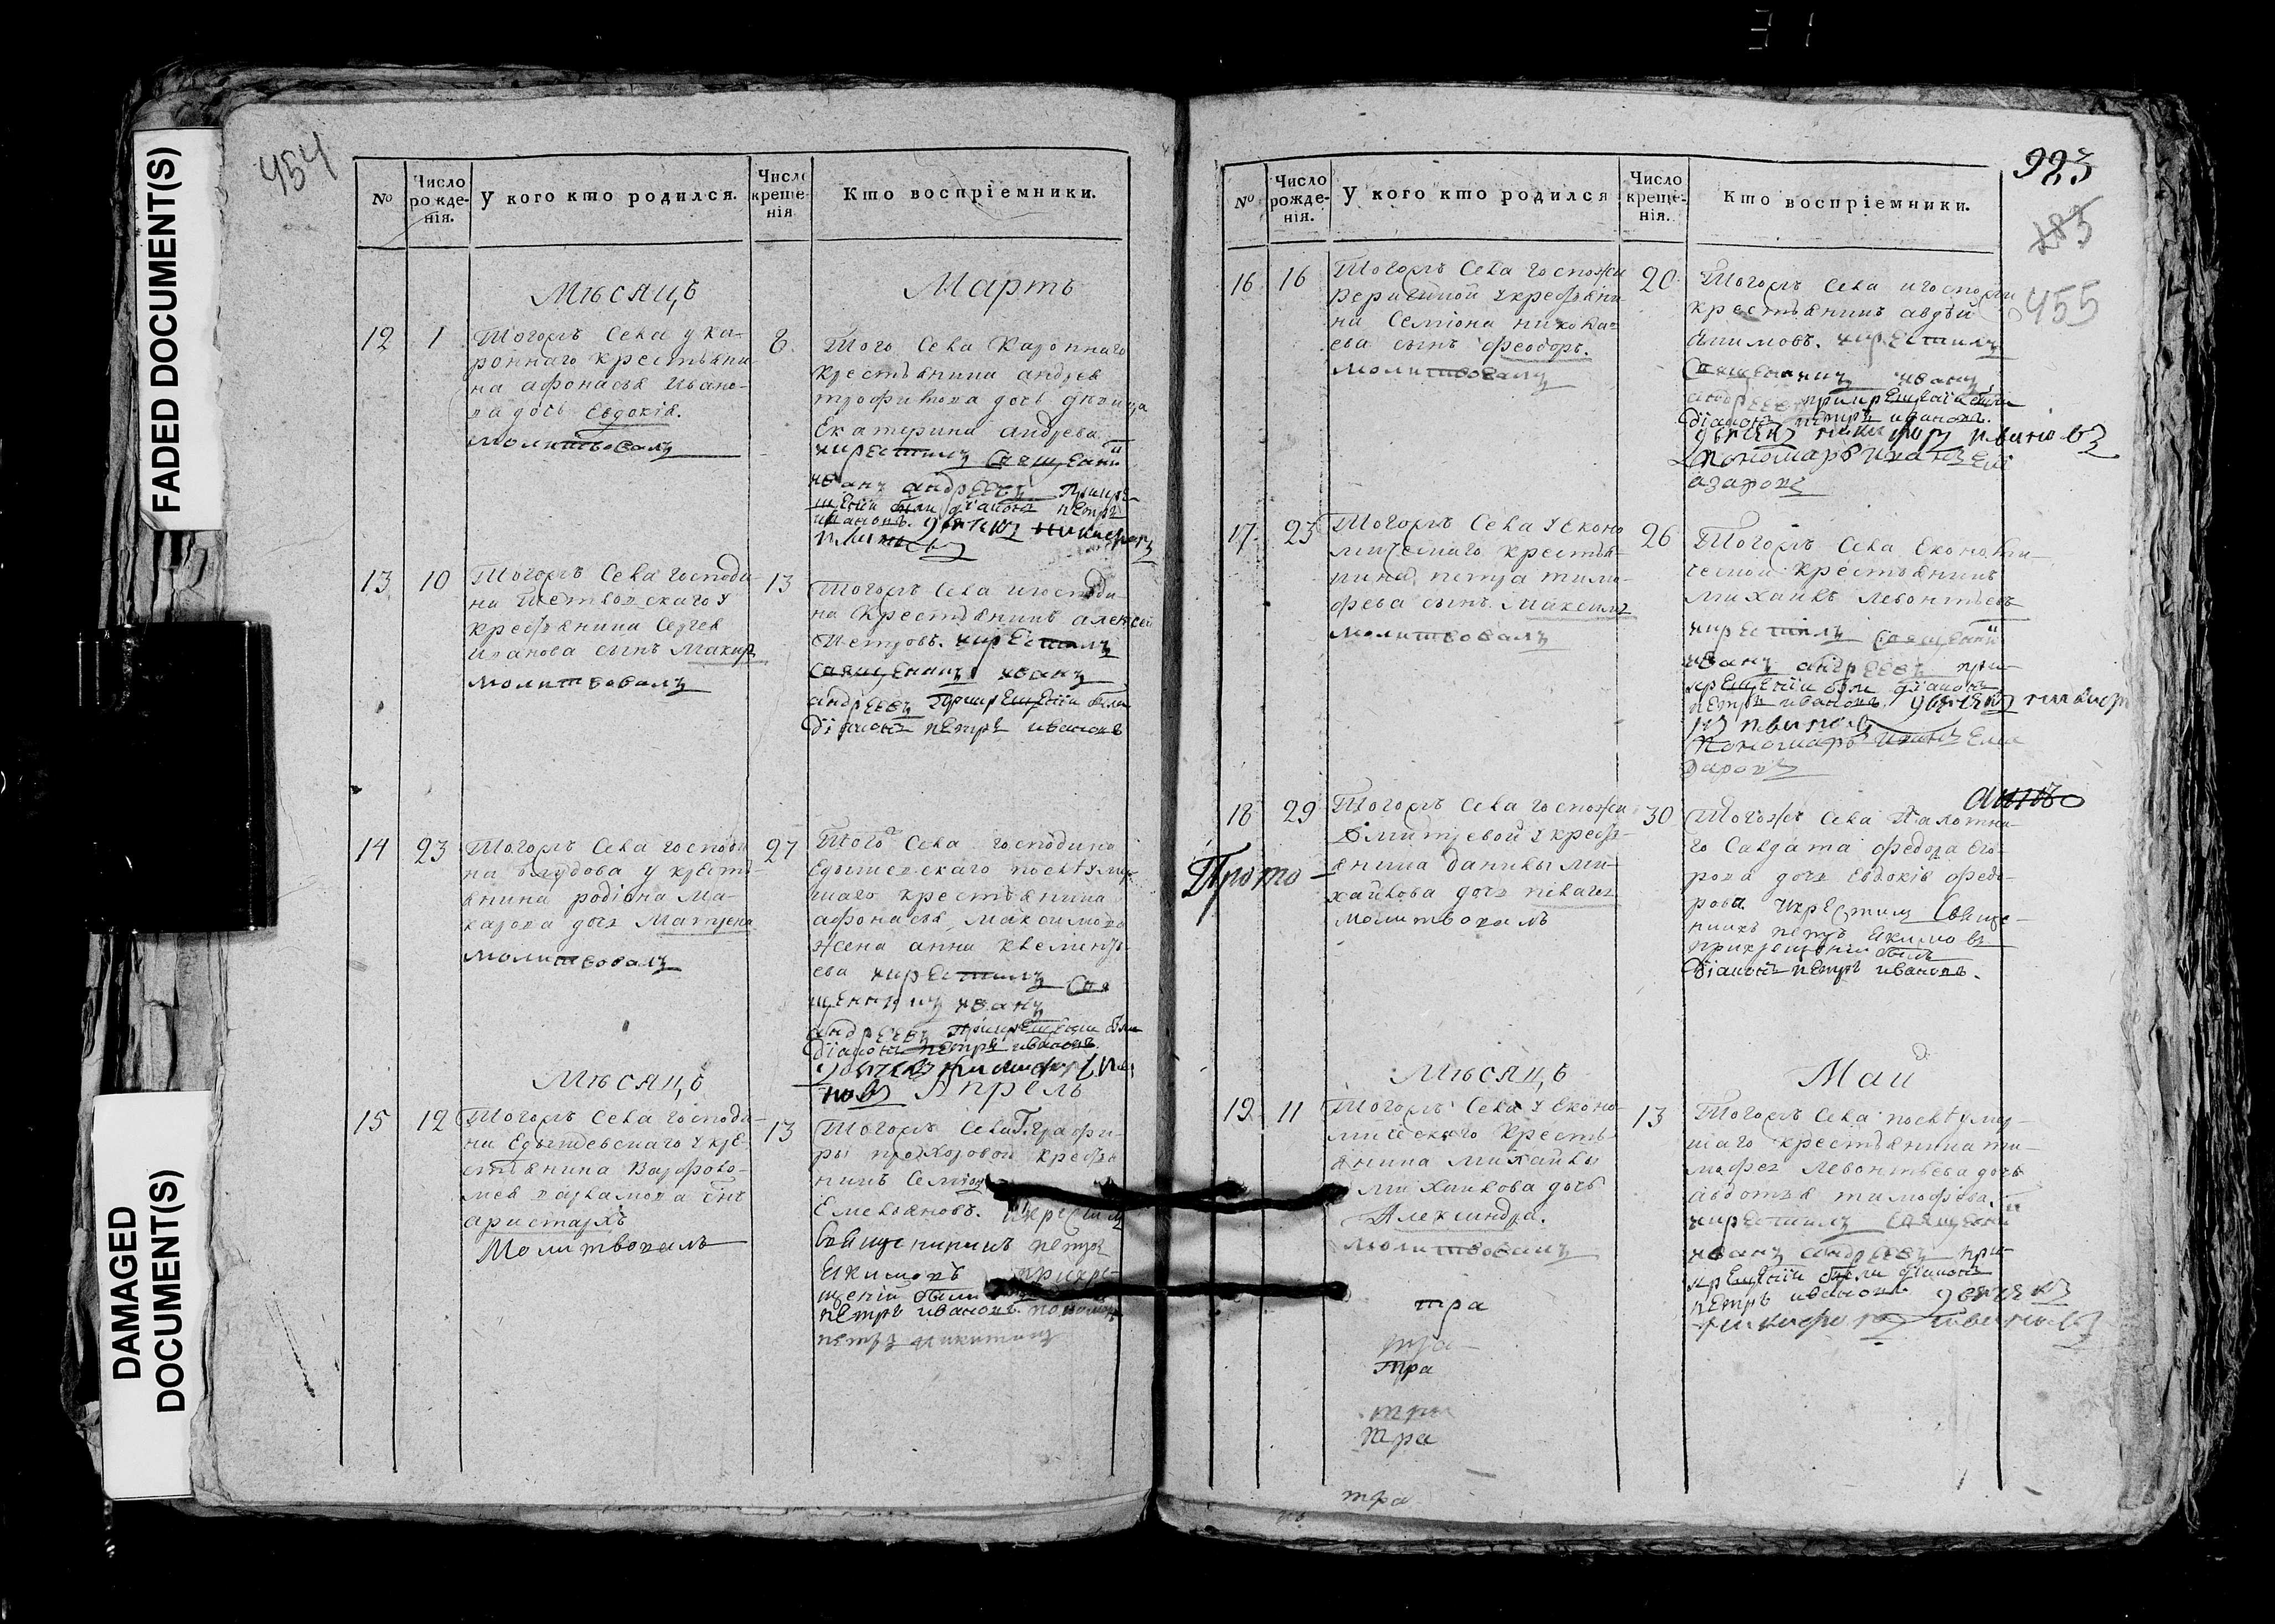 454
FADED DOCUMENT(S)
DAMAGED
DOCUMENT(S)
№
Число
рожде-
нія.
У кого кто родился.
Число
креще-
нія
Кто воспріемники.
Мѣсяцъ
Мартъ
12
1
Тогожъ Села у ка-
роннаго крестьяни-
на афонасья Ивано-
ва дочь Евдокія.
молитвовалъ
8
Того Села Каронного
крестьянина андрея
трофимова дочь девица
Екатерина андреева
икрестилъ Священи
иванъ андреевъ. Прикре-
щеніи были діаконъ петръ
ивановъ. дьячекъ никифоръ
ивановъ
13
10
Тогожъ Села господи-
на
крестьянина Сергея
Иванова сынъ Макаръ
молитвовалъ
13
Тогожъ Села игосподи-
на Крестьянинъ алексей
Петровъ. икрестилъ
Священникъ иванъ
андреевъ Прикрещеніи были
діаконъ петръ ивановъ
14
23
Тогожъ Села господи
на Блудова у крест-
янина родіона Ма-
карова дочь Матрена
молитвовалъ
27
Того Села господина
послѣ умер-
шаго крестьянина
афонасья Максимова
жена анна Клементь-
ева икрестилъ Свя
щенникъ иванъ
андреевъ Прикрещеніи были
діаконъ петръ ивановъ
дьячекъ никифоръ ива
новъ
Мѣсяцъ
Апрель
15
12
Тогожъ Села господи-
на у кре-
стьянина Варфоло-
мея сынъ
аристархъ
Молитвовалъ
13
Тогожъ Села Г.
крестья
нинъ Семіонъ
Емельяновъ. икрестилъ
Священникъ петръ
Екимовъ прикре-
щеніи были
петръ ивановъ. пономарь
петръ никитинъ
923
455
№
Число
рожде-
нія.
У кого кто родился
Число
креще-
нія.
Кто воспріемники.
16
16
Тогожъ Села госпожи
у крестьяни-
на Семіона никола-
ева сынъ феодоръ.
молитвовалъ
20
Тогожъ Села игоспожи
крестьянинъ авдѣй
икрестилъ
Священникъ иванъ
андреевъ прикрещеніи были
діаконъ петръ ивановъ.
дьячекъ никифоръ ивановъ
Пономарь иванъ
17
23
Тогожъ Села у Еконо
мическаго крестья-
нина петра тимо-
феева сынъ Максимъ
молитвовалъ
26
Тогожъ Села Економи-
ческой крестьянинъ
михайлъ левонтьевъ
икрестилъ Священи
иванъ андреевъ при-
крещеніи были діаконъ
петръ ивановъ дьячекъ никифо
ръ ивановъ
Пономарь иванъ
18
29
Тогожъ Села госпожи
Дмитревой у крест-
янина данилы ми-
хайлова дочь пелагея
молитвовалъ
Прото-
30
Тогожъ Села
го Салдата федора Его-
рова дочь Евдокія федо-
рова. икрестилъ Свяще-
нникъ петръ Екимовъ
прикрещеніи былъ
діаконъ петръ ивановъ.
Мѣсяцъ
Май
19
11
Тогожъ Села у Еконо-
мическаго Кресть-
янина михайлы
михайлова дочь
Александра.
молитвовалъ
13
Тогожъ Села послѣ умер-
шаго крестьянина ти-
мофея Левонтьева дочь
авдотья тимофеева.
икрестилъ священи
иванъ андреевъ при-
крещеніи были діаконъ
петръ ивановъ дьячекъ
никифоръ ивановъ
тра
тра
тра
тра
тра
тра